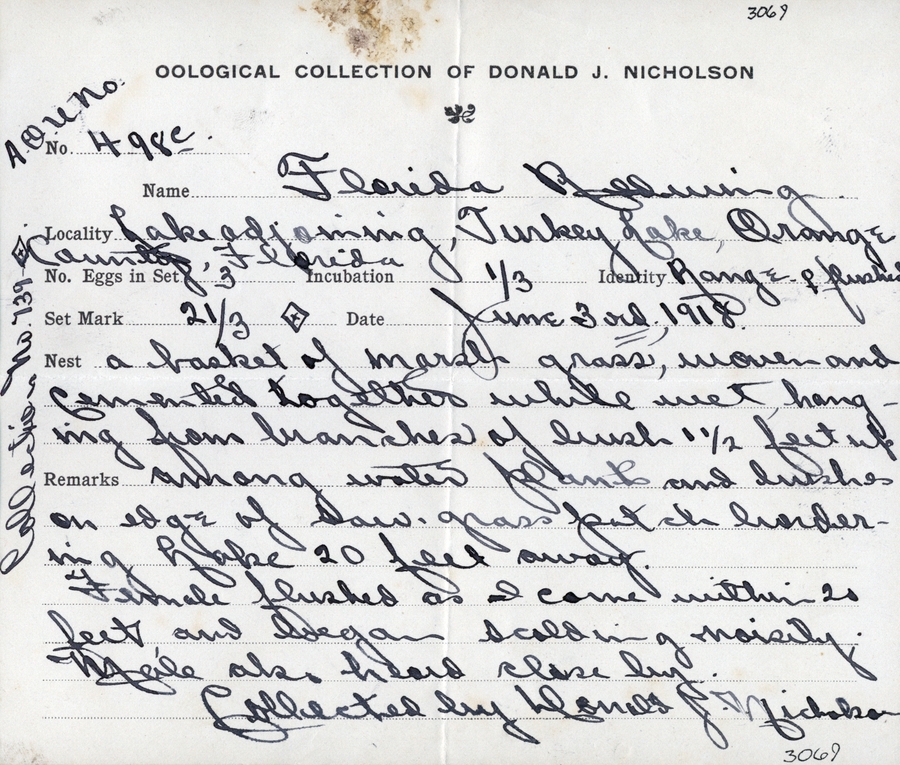 3069
OOLOGICAL COLLECTION OF DONALD J. NICHOLSON
A.O.U. No.
No. 498c.
Name Florida Redwing
Locality Lake adjoining, Turkey Lake, Orange
County, Florida
No. Eggs in Set 3 Incubation 1/3 Identity Range - ♀ flushed
Set Mark 21/3 Date June 3rd, 1918.
Nest a basket of marsh grass, woven and
cemented together while wet, hang-
ing from branches of bush 1 1/2 feet up
Remarks among water plants and bushes
on edge of saw-grass patch border-
ing lake 20 feet away.
Female flushed as I came within 20
feet and began scolding noisily.
Male also heard close by.
Collected by Donald J. Nicholson
Collection No. 739
3069